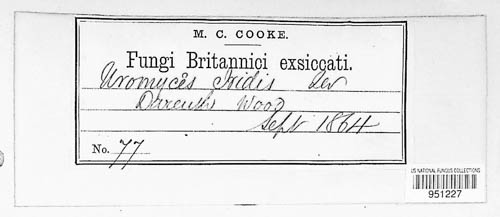 M. C. COOKE.
Fungi Britannici exsiccati.
Uromyces Iridis Lev
Darenth Wood
Sept 1864
No. 77
US NATIONAL FUNGUS COLLECTIONS
951227